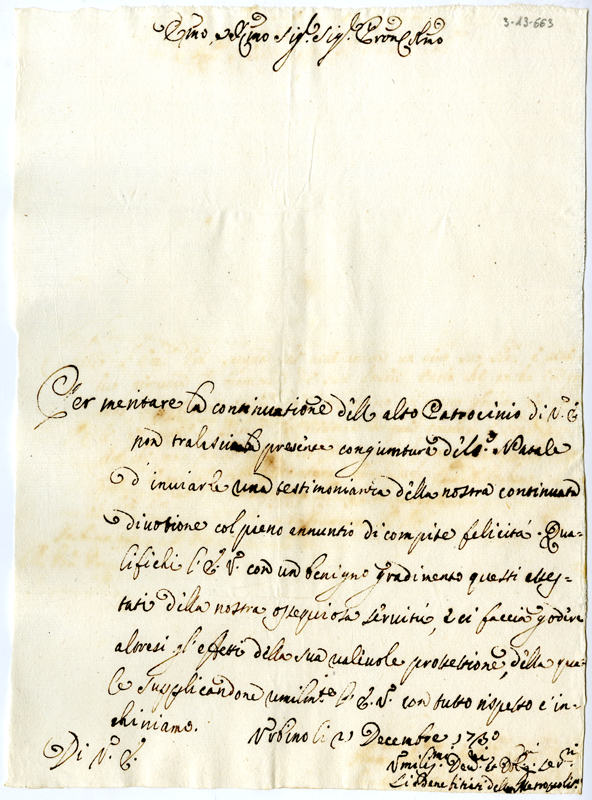 3-13-663
Emo, e Rmo Sig.r Sig.r Pron Cmo
Per meritare la continuatione dell alto Patrocinio di V.ª E
non tralasciam le presente congiunture del S. Natale
d'inviarle una testimonianza della nostra continuata
divotione col pieno annuntio di compite felicitá. Qua-
lifichi l'E.V. con un benigno gradimento questi attes-
tati della nostra ossequiosa servitú, e ci faccia godere
altresi gl'effetti della sua valevole protettione, della qua-
le supplicandone umilm.te l'E.V. con tutto rispetto c'in-
chiniamo.
Urbino li 21 Decembre 1730
Di V. E.
Umiliss.mi Dev.mi et Obl.mi Se.ri
Li Benefitiati della Metropolit.